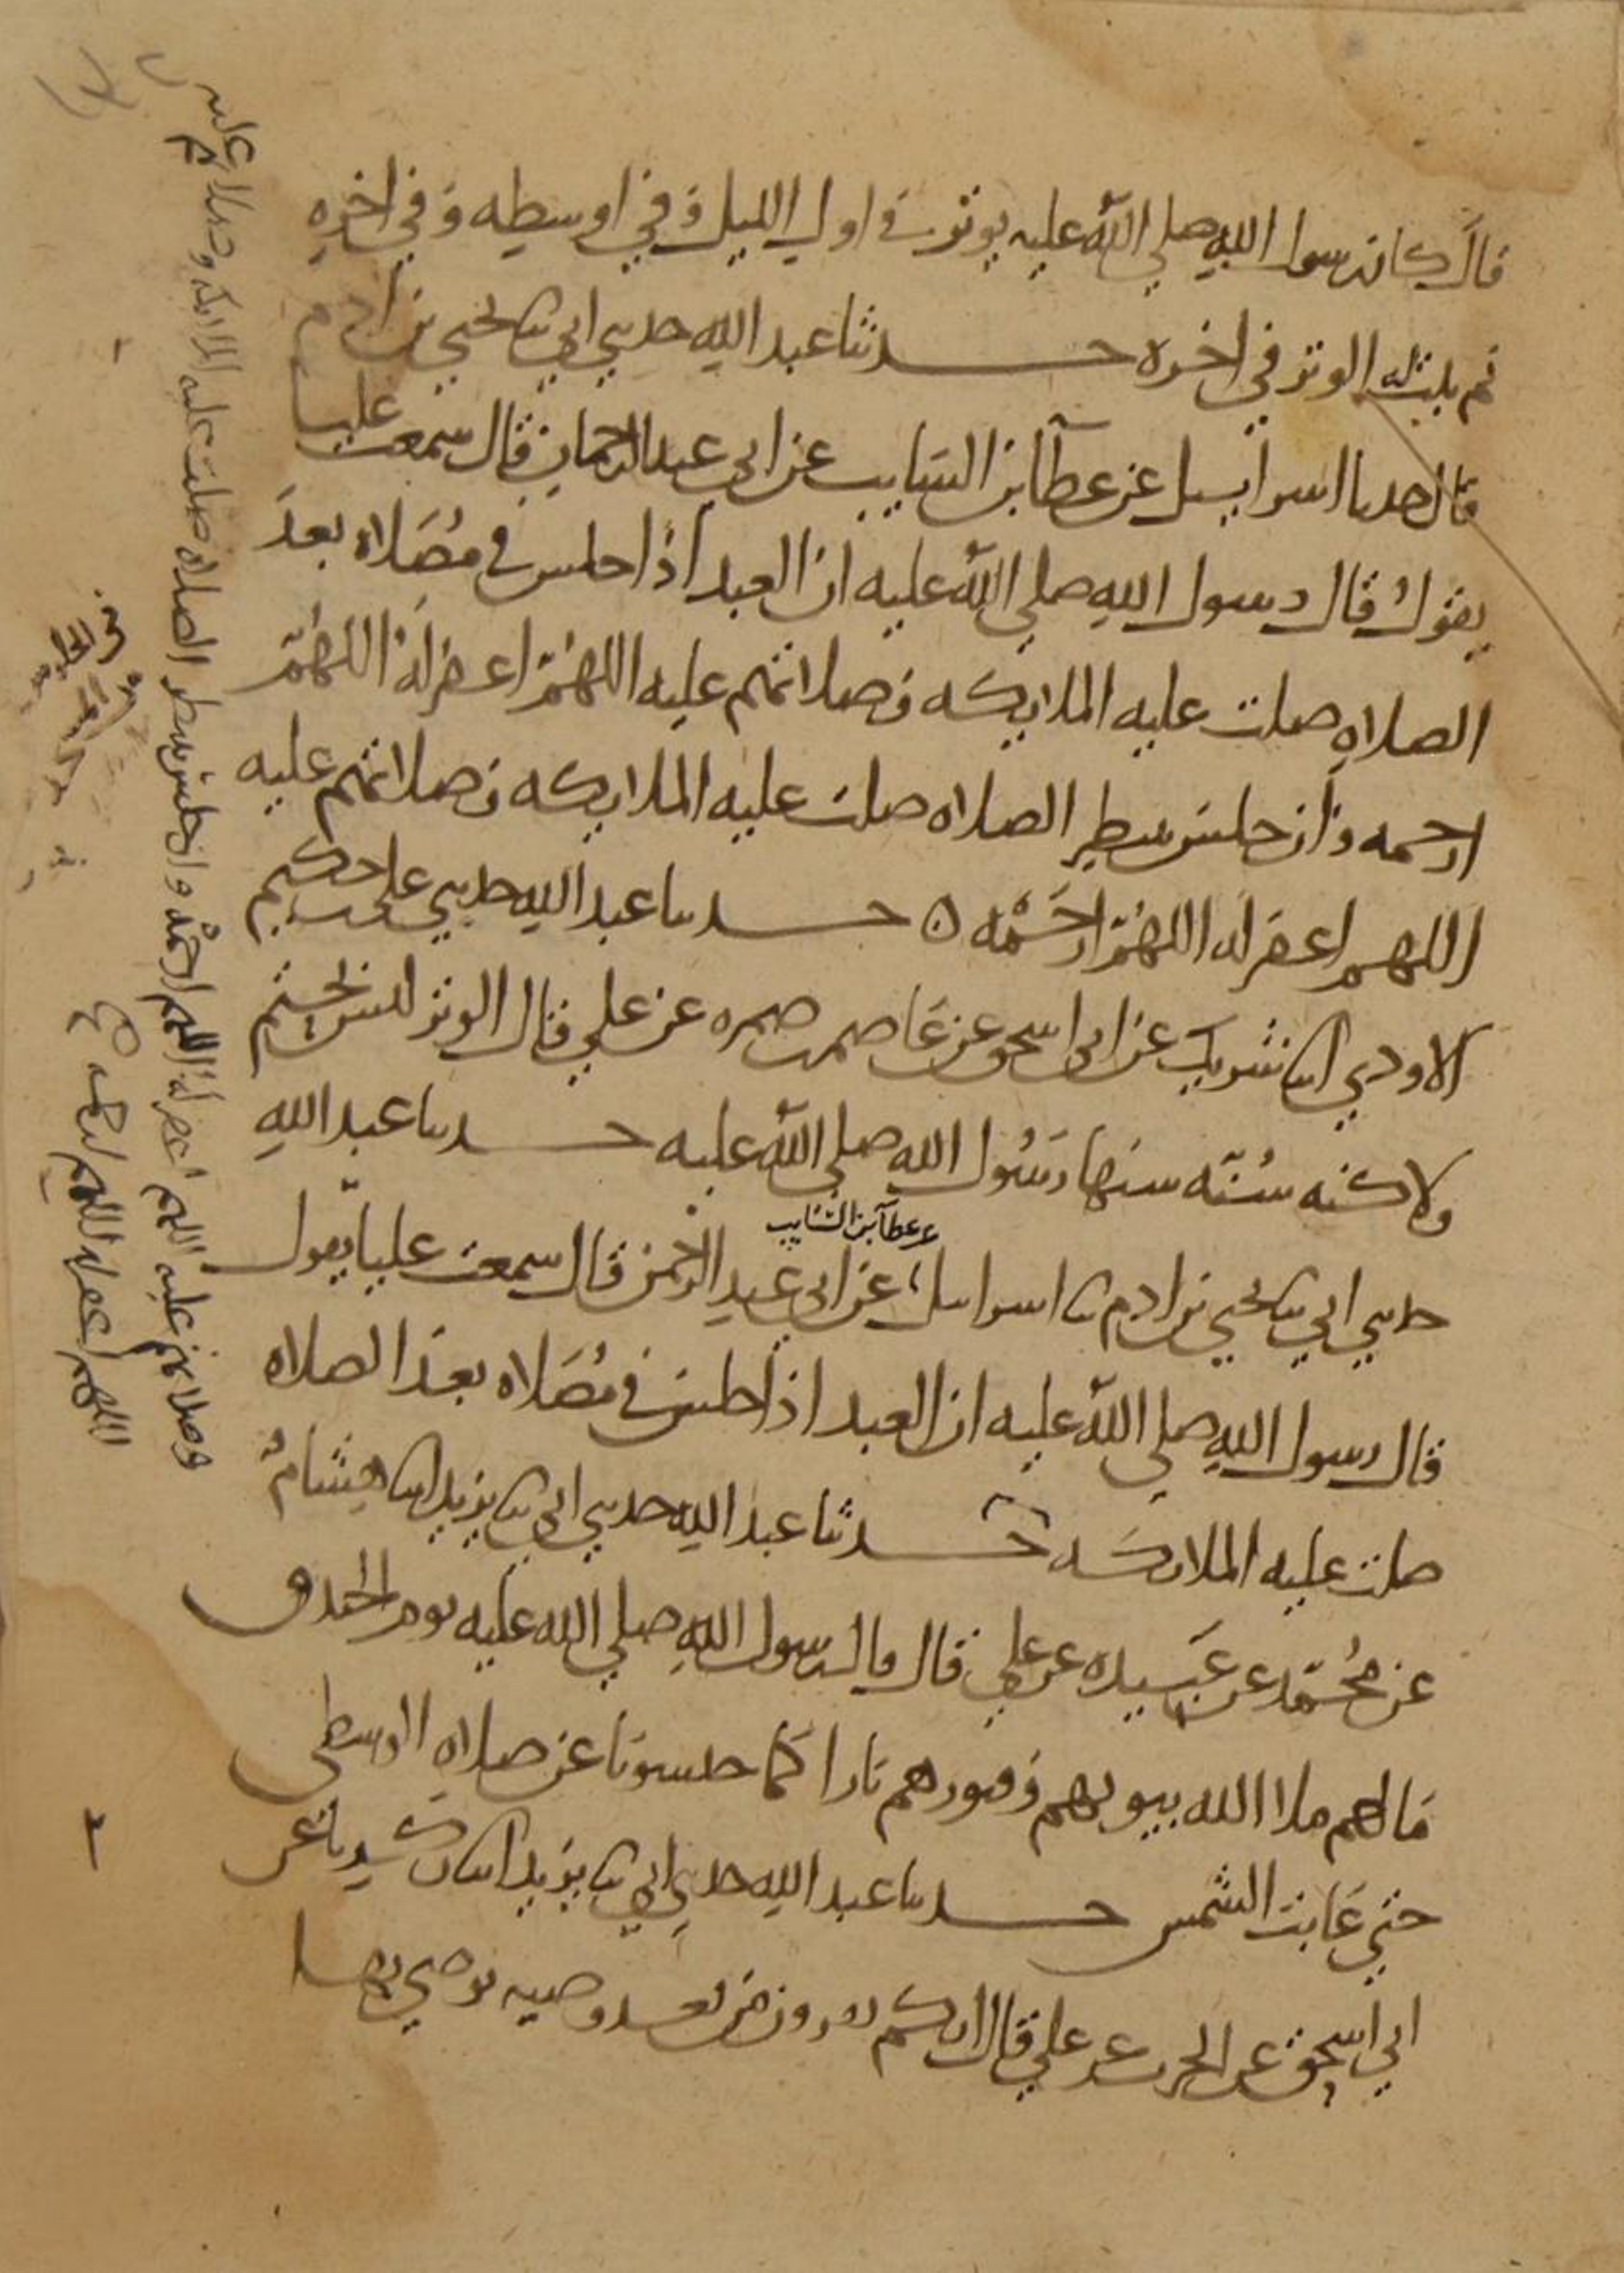 قال كان رسول الله صلى الله عليه يوتر في اول الليل وفي اوسطه وفي اخره
ثم ثبت له الوتر في اخره حدثنا عبد الله حدثني ابي ثنا يحيى بن ادم
قال حدثنا اسراييل عن عطا بن السايب عن ابي عبد الرحمان قال سمعت عليا
يقول قال رسول الله صلى الله عليه ان العبد اذا جلس في مصلاه بعد
الصلاه صلت عليه الملايكه وصلاتهم عليه اللهم اغفر له اللهم
ارحمه وان جلس ينتظر الصلاه صلت عليه الملايكه وصلاتهم عليه
اللهم اغفر له اللهم ارحمه ه حدثنا عبد الله حدثني علي بن حكيم
الاودي انا شريك عن ابي اسحق عن عاصم بن ضمره عن علي قال الوتر ليس بحتم
ولاكنه سنه سنها رسول الله صلى الله عليه حدثنا عبد الله
حدثني ابي ثنا يحيى بن ادم ثنا اسراييل عن ابي عبد الرحمن قال سمعت عليا يقول
عن عطا بن السايب
قال رسول الله صلى الله عليه ان العبد اذا جلس في مصلاه بعد الصلاه
صلت عليه الملايكه حدثنا عبد الله حدثني ابي ثنا يزيد انا هشام
عن محمد عن عبيده عن علي قال قال رسول الله صلى الله عليه يوم الخندق
مالهم ملا الله بيوتهم وقبورهم نارا كما حبسونا عن صلاه الوسطى
حتى غابت الشمس حدثنا عبد الله حدثني ابي ثنا يزيد انا زكريا عن
ابي اسحق عن الحرث عن علي قال انكم تقرون من بعد وصيه يوصى بها
صلت عليه الملايكه وصلاتهم عليه
وصلاتهم عليه اللهم اغفر له اللهم ارحمه وان جلس ينتظر الصلاه
اللهم اغفر له اللهم ارحمه صح